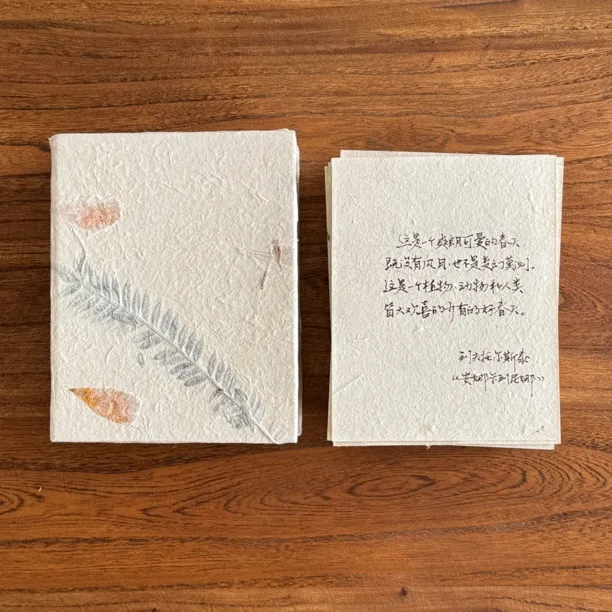 这是一个朗可爱的春天
既没有风月，也不是
这是一个植物、动物和人类
皆大欢喜的少有的好春天。
列夫托尔斯泰
《安娜卡列尼娜》